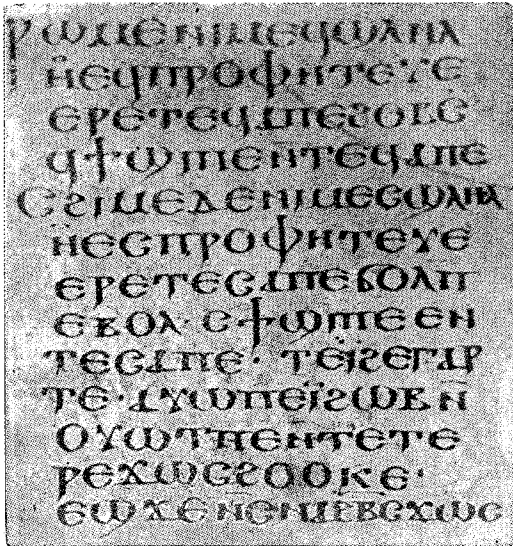 ⲣⲱⲙⲉⲛⲓⲙⲉϥϣⲗⲏⲗ
ⲏⲉϥⲡⲣⲟⲫⲏⲧⲉⲩⲉ
ⲉⲣⲉⲧⲉϥⲁⲡⲉϩⲟⲃⲥ̄
ϥϯϣⲓⲡⲉⲛⲧⲉϥⲁⲡⲉ
ⲥϩⲓⲙⲉⲇⲉⲛⲓⲙⲉⲥϣⲗⲏⲗ
ⲏⲉⲥⲡⲣⲟⲫⲏⲧⲉⲩⲉ
ⲉⲣⲉⲧⲉⲥⲁⲡⲉϭⲟⲗⲡ̄
ⲉⲃⲟⲗ· ⲥϯϣⲓⲡⲉⲉⲛ
ⲧⲉⲥⲁⲡⲉ· ⲧⲉⲓ̈ϩⲉⲅⲁⲣ
ⲧⲉ·ⲁⲩⲱⲡⲉⲓ̈ϩⲱⲃⲛ̄
ⲟⲩⲱⲧⲡⲉⲛⲧⲉⲧⲉ
ⲣⲉϫⲱⲥϩⲟⲟⲕⲉ·
ⲉϣϫⲉⲛⲥⲛⲁϩⲃⲥϫⲱⲥ